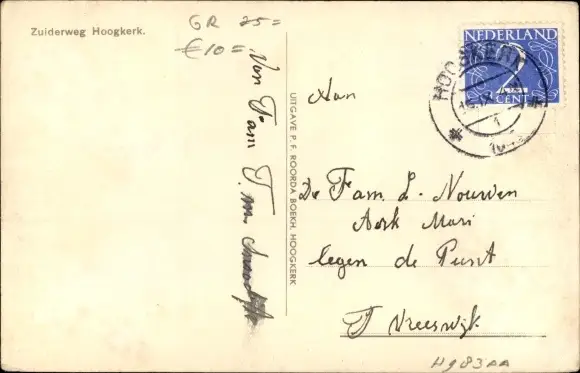 Zuiderweg Hoogkerk.
GR 25=
€10=
Van Fam T. m
UITGAVE P. F. ROORDA BOEKH. HOOGKERK
NEDERLAND
2
CENT
HOOGKERK
1
Aan
De Fam. L. Nourven
Aork Mari
legen de Punt
T Vreeswijk
Hg83AA